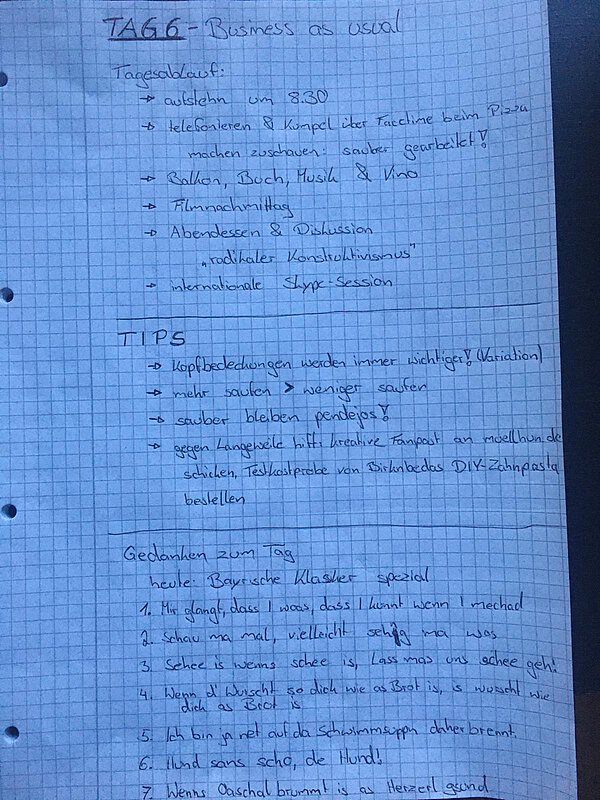 TAG 6 - Business as usual
Tagesablauf:
→ aufstehn um 8.30
→ telefonieren & Kumpel über Facetime beim Pizza
machen zuschauen: sauber gearbeitet!
→ Balkon, Buch, Musik & Vino
→ Filmnachmittag
→ Abendessen & Diskussion
„radikaler Konstruktivismus"
→ internationale Skype-Session
TIPS
→ Kopfbedeckungen werden immer wichtiger! (Variation)
→ mehr saufen > weniger saufen
→ sauber bleiben pendejos!
→ gegen Langeweile hilft: kreative Fanpost an
schicken, Testkostprobe von DIY-Zahnpasta
bestellen
Gedanken zum Tag
heute: Bayrische Klassiker spezial
1. Mir glangt, dass I woas, dass I kunnt wenn I mechad
2. Schau ma mal, vielleicht sehg ma was
3. Schee is wenns schee is, Lass mas uns schee geh!
4. Wenn d' Wurscht so dick wie as Brot is, is wurscht wie
dick as Brot is
5. Ich bin ja net auf da Schwimmsuppn daherbrennt.
6. Hund sans scho, de Hund!
7. Wenns Oaschal brummt is as Herzerl gsund